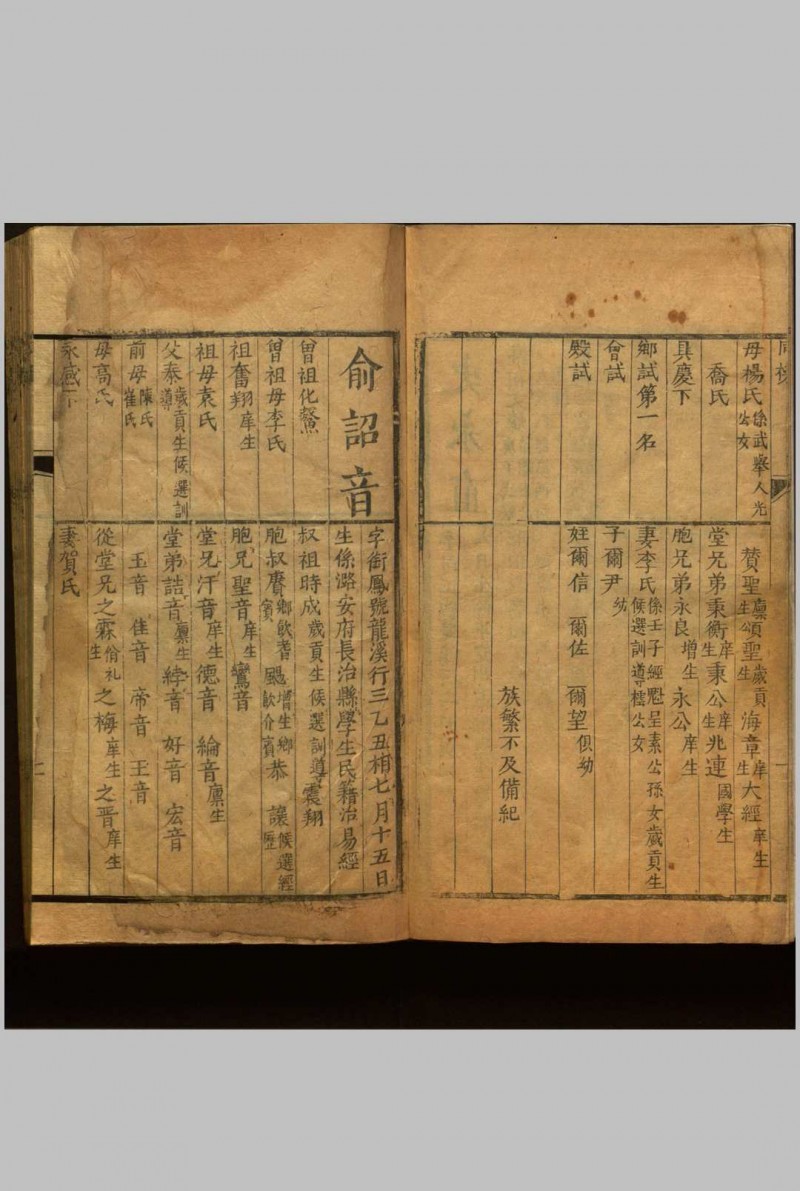 母楊氏 係武舉人光公女
喬氏
具慶下
鄉試第一名
會試
殿試
贊聖廩生 頌聖歲貢生 海章庠生 大經庠生
堂兄弟秉衡庠生 秉公庠生 兆連國學生
胞兄弟永良增生 永公庠生
妻李氏 係壬子經魁呈素公孫女歲貢生候選訓導檽公女
子爾尹幼
姪爾信 爾佐 爾望俱幼
族繁不及備紀
俞詔音
字銜鳳號龍溪行三乙丑相七月十五日
生係潞安府長治縣學生民籍治易經
曾祖化鰲
曾祖母李氏
祖奮翔庠生
祖母袁氏
父泰歲貢生候選訓導
前母陳氏崔氏
母高氏
永感下
叔祖時成歲貢生候選訓導 震翔
胞叔賡鄉飲耆賓 颺增生鄉飲介賓 恭 讓候選經歷
胞兄聖音庠生 鸞音
堂兄汗音庠生 德音 綸音廩生
堂弟誥音廩生 綍音 好音 宏音
玉音 佳音 帝音 王音
從堂兄之霖俏礼生 之梅庠生 之晋庠生
妻賀氏